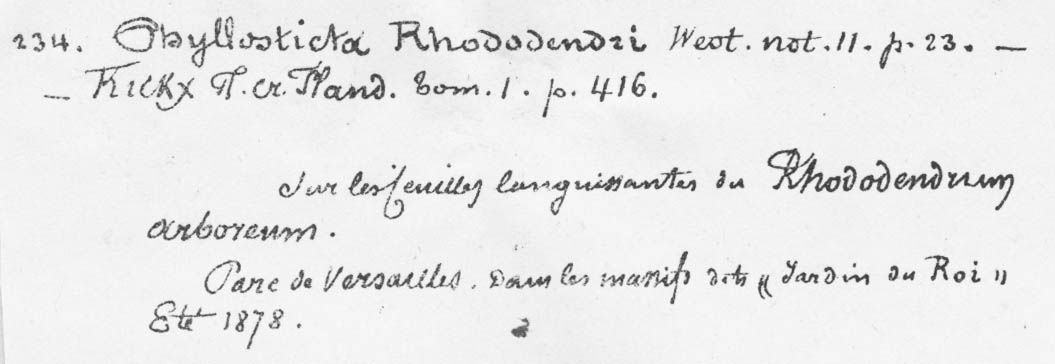 234. Phyllosticta Rhododendri West. not. 11. p. 23. —
— Kickx Fl. cr. Fland. Tom. 1. p. 416.
Sur les feuilles languissantes du Rhododendrum
arboreum.
Parc de Versailles. Dans les massifs dits „ Jardin du Roi "
Eté 1878.